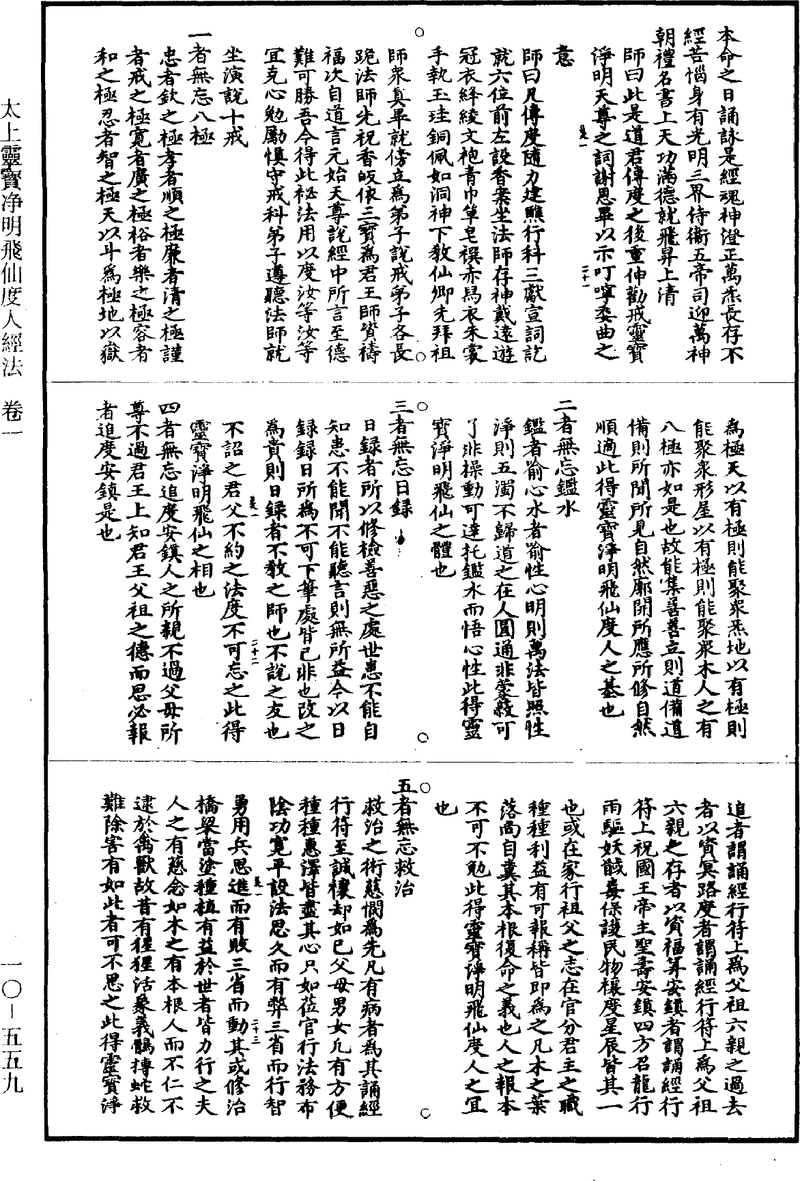 本命之日誦詠是經魂神澄正萬炁長存不
經苦惱身有光明三界侍衛五帝司迎萬神
朝禮名書上天功滿德就飛昇上清
師曰此是道君傳度之後重伸勸戒靈寶
淨明天尊之詞謝恩畢以示叮嚀委曲之
意
師曰凡傳度隨力建醮行科三獻宣詞訖
就六位前左設香案坐法師存神戴遠遊
冠衣絳綾文袍青巾單皂襈赤舄衣朱裳
手執玉珪銅佩如洞神下教仙卿先拜祖
師衆真畢就傍立為弟子說戒弟子各長
跪法師先祝香皈依三寶為君王師資禱
福次自道言元始天尊說經中所言至德
難可勝吾今得此祕法用以度汝等汝等
宜克心勉勵慎守戒科弟子遵聽法師就
坐演說十戒
一者無忘八極
忠者欽之極孝者順之極廉者清之極謹
者戒之極寬者廣之極裕者樂之極容者
和之極忍者智之極天以斗為極地以嶽
為極天以有極則能聚衆炁地以有極則
能聚衆形屋以有極則能聚衆木人之有
八極亦如是也故能集善善立則道備道
備則所聞所見自然廓開所應所修自然
順適此得靈寶淨明飛仙度人之基也
二者無忘鑑水
鑑者喻心水者喻性心明則萬法皆照性
淨則五濁不歸道之在人圓通非蒙蔽可
了非操動可達托鑑水而悟心性此得靈
寶淨明飛仙之體也
三者無忘日録
日録者所以修檢善惡之處世患不能自
知患不能聞不能聽言則無所益今以日
録録日所為不可下筆處皆已非也改之
為貴則日録者不教之師也不說之友也
不詔之君父不約之法度不可忘之此得
靈寶淨明飛仙之相也
四者無忘追度安鎮人之所親不過父母所
尊不過君王上知君王父祖之德而思必報
者追度安鎮是也
追者謂誦經行符上為父祖六親之過去
者以資冥路度者謂誦經行符上為父祖
六親之存者以資福筭安鎮者謂誦經行
符上祝國王帝主聖壽安鎮四方召龍行
雨驅妖馘毒保護民物禳度星辰皆其一
也或在家行祖父之志在官分君主之職
種種利益有可報稱皆即為之凡木之葉
落尚自糞其本根復命之義也人之報本
不可不勉此得靈寶淨明飛仙度人之宜
也
五者無忘救治
救治之術慈憫為先凡有病者為其誦經
行符至誠禳却如己父母男女凡有方便
種種惠澤皆盡其心只如莅官行法務布
陰功寬平設法思久而有弊三省而行智
勇用兵思進而有敗三省而動其或修治
橋梁當塗種植有益於世者皆力行之夫
人之有慈念如木之有本根人而不仁不
逮於禽獸故昔有猩猩活衆義鶻摶蛇救
難除害有如此者可不思之此得靈寶淨
太上靈寶净明飛仙度人經法 卷一
一〇-五五九